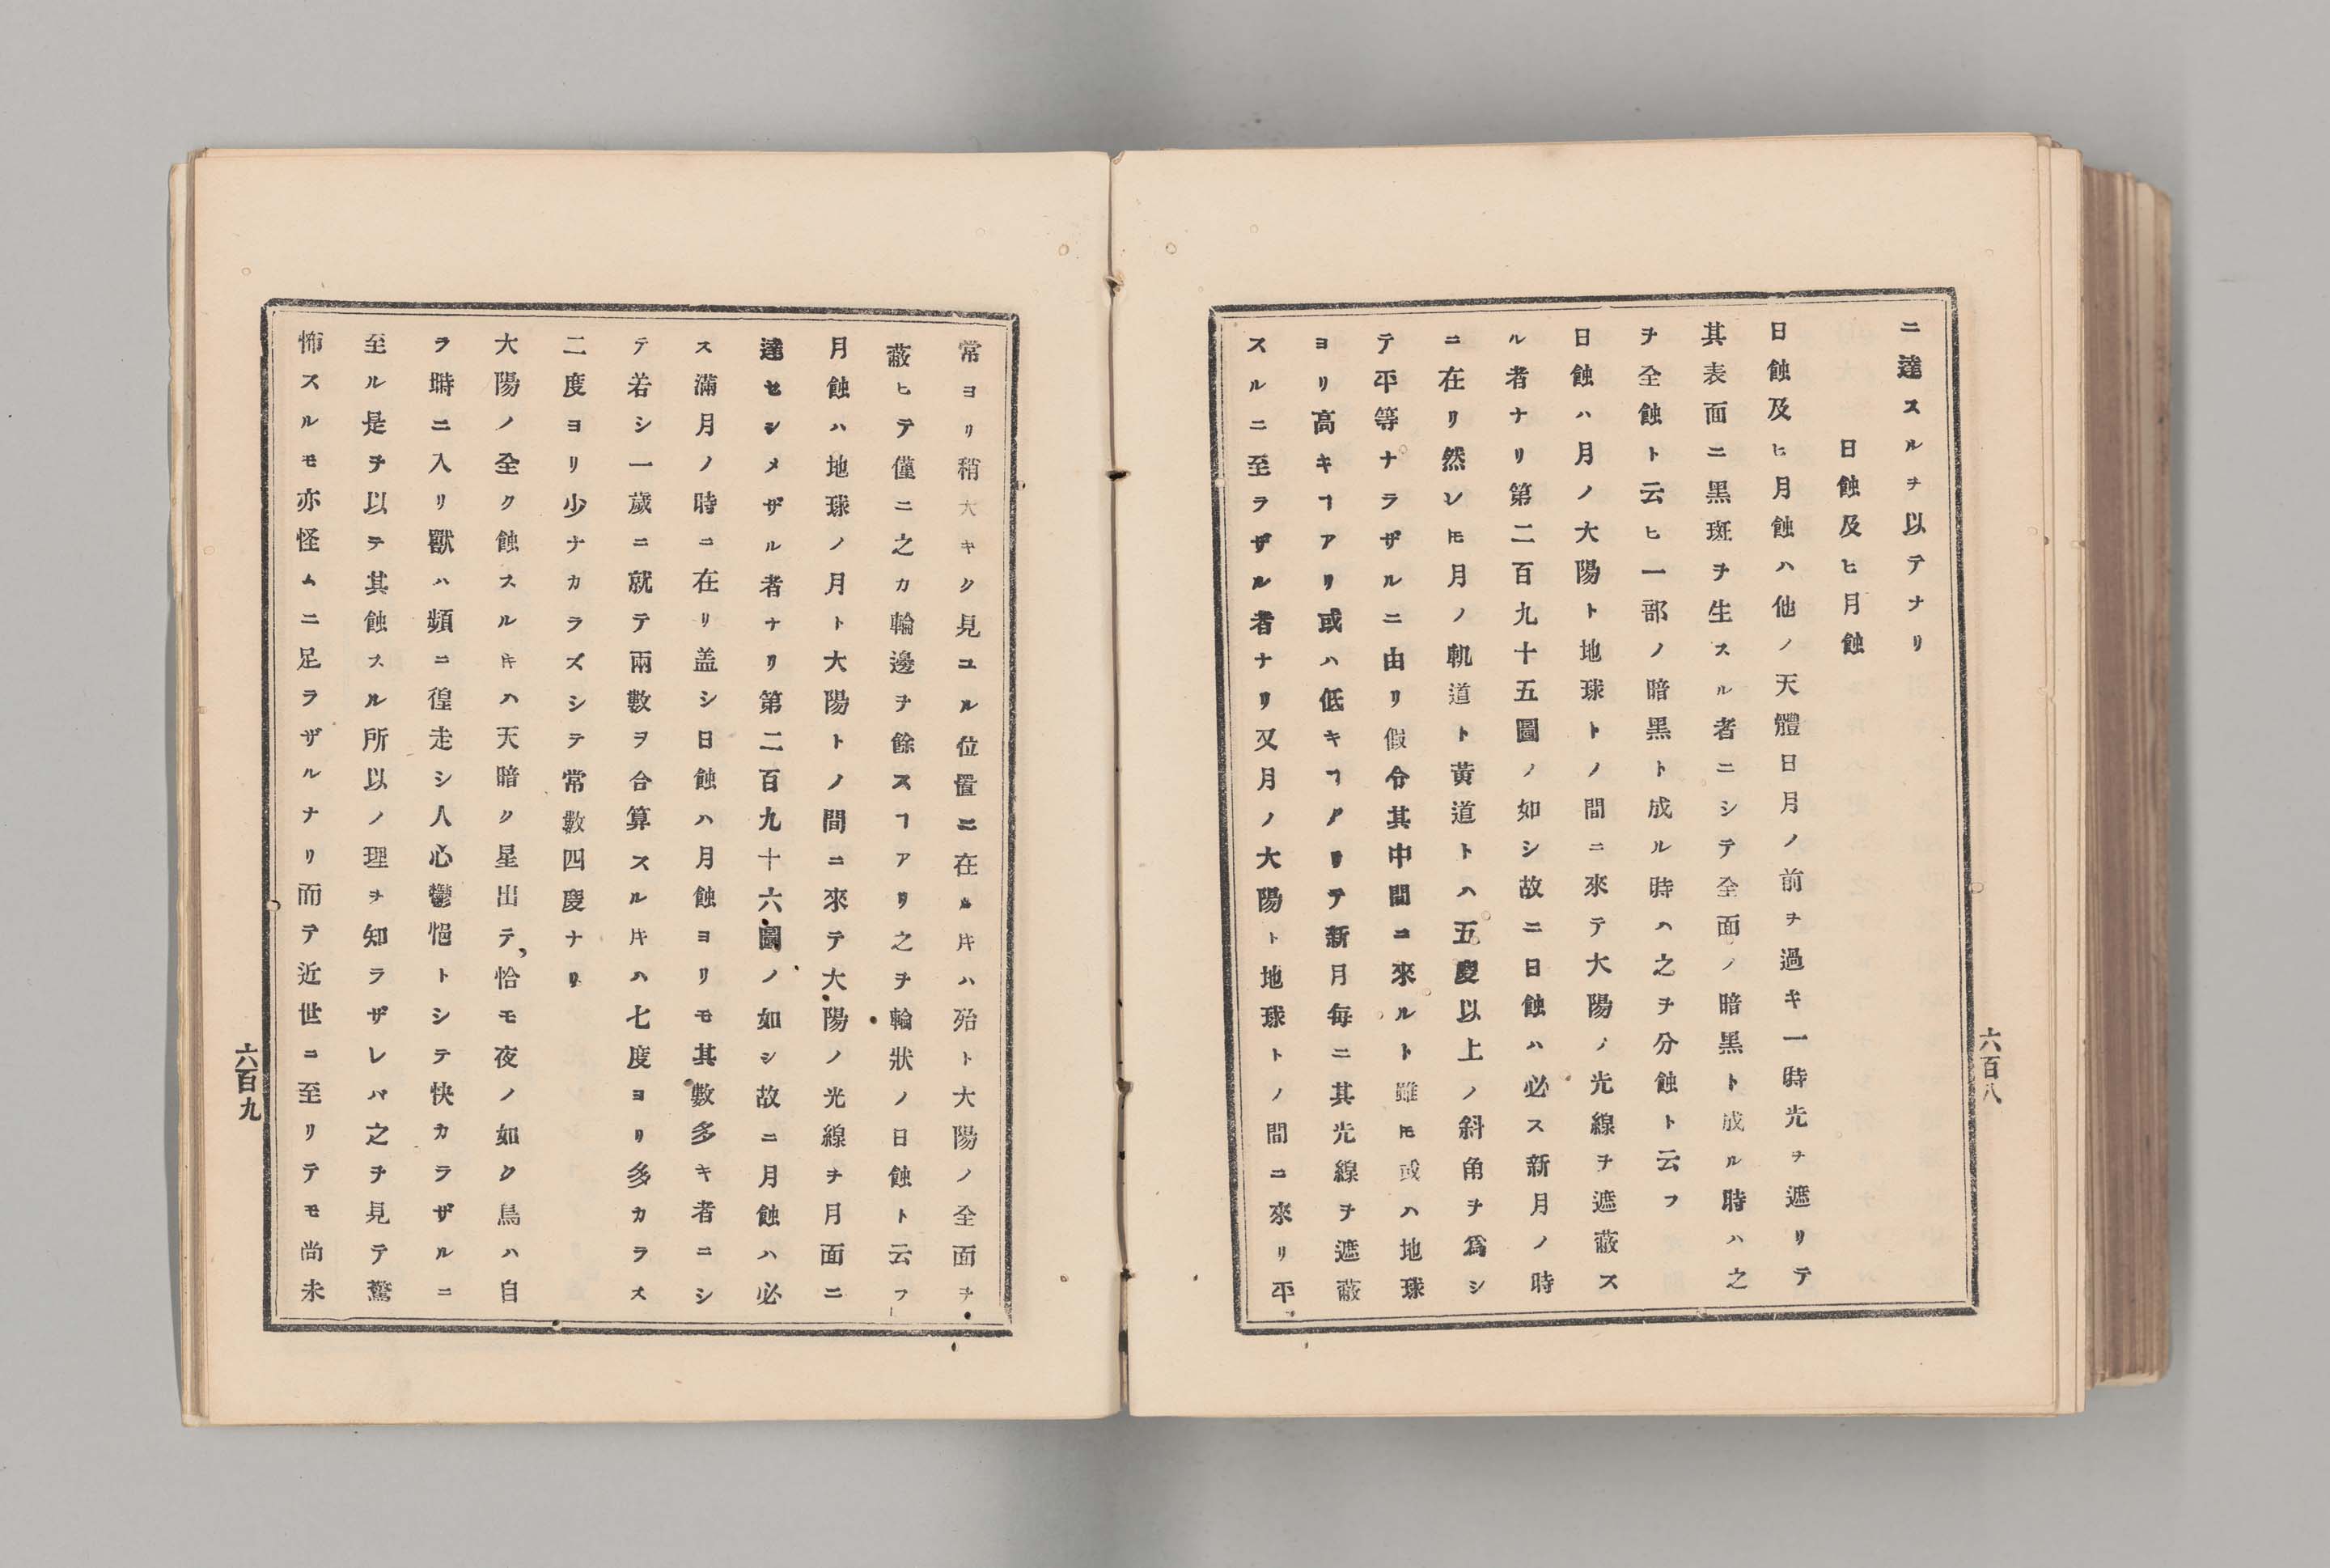 ニ達スルヲ以テナリ
日蝕及ヒ月蝕
日蝕及ヒ月蝕ハ他ノ天體日月ノ前ヲ過キ一時光ヲ遮リテ
其表面ニ黒斑ヲ生スル者ニシテ全面ノ暗黒ト成ル時ハ之
ヲ全蝕ト云ヒ一部ノ暗黒ト成ル時ハ之ヲ分蝕ト云フ
日蝕ハ月ノ大陽ト地球トノ間ニ來テ大陽ノ光線ヲ遮蔽ス
ル者ナリ第二百九十五圖ノ如シ故ニ日蝕ハ必ス新月ノ時
ニ在リ然レ𪜈月ノ軌道ト黃道トハ五度以上ノ斜角ヲ爲シ
テ平等ナラザルニ由リ假令其中間ニ來ルト雖𪜈或ハ地球
ヨリ高キヿアリ或ハ低キヿアリテ新月毎ニ其光線ヲ遮蔽
スルニ至ラザル者ナリ又月ノ大陽ト地球トノ間ニ來リ平
六百八
常ヨリ稍大キク見ユル位置ニ在ルキハ殆ト大陽ノ全面ヲ
蔽ヒテ僅ニ之カ輪邊ヲ餘スヿアリ之ヲ輪狀ノ日蝕ト云フ
月蝕ハ地球ノ月ト大陽トノ間ニ來テ大陽ノ光線ヲ月面ニ
達セシメザル者ナリ第二百九十六圖ノ如シ故ニ月蝕ハ必
ス滿月ノ時ニ在リ盖シ日蝕ハ月蝕ヨリモ其數多キ者ニシ
テ若シ一歲ニ就テ兩數ヲ合算スルキハ七度ヨリ多カラス
二度ヨリ少ナカラズシテ常數四度ナリ
大陽ノ全ク蝕スルキハ天暗ク星出テ、恰モ夜ノ如ク鳥ハ自
ラ塒ニ入リ獸ハ頻ニ徨走シ人心鬱悒トシテ快カラザルニ
至ル是ヲ以テ其蝕スル所以ノ理ヲ知ラザレバ之ヲ見テ驚
怖スルモ亦怪ムニ足ラザルナリ而テ近世ニ至リテモ尚未
六百九